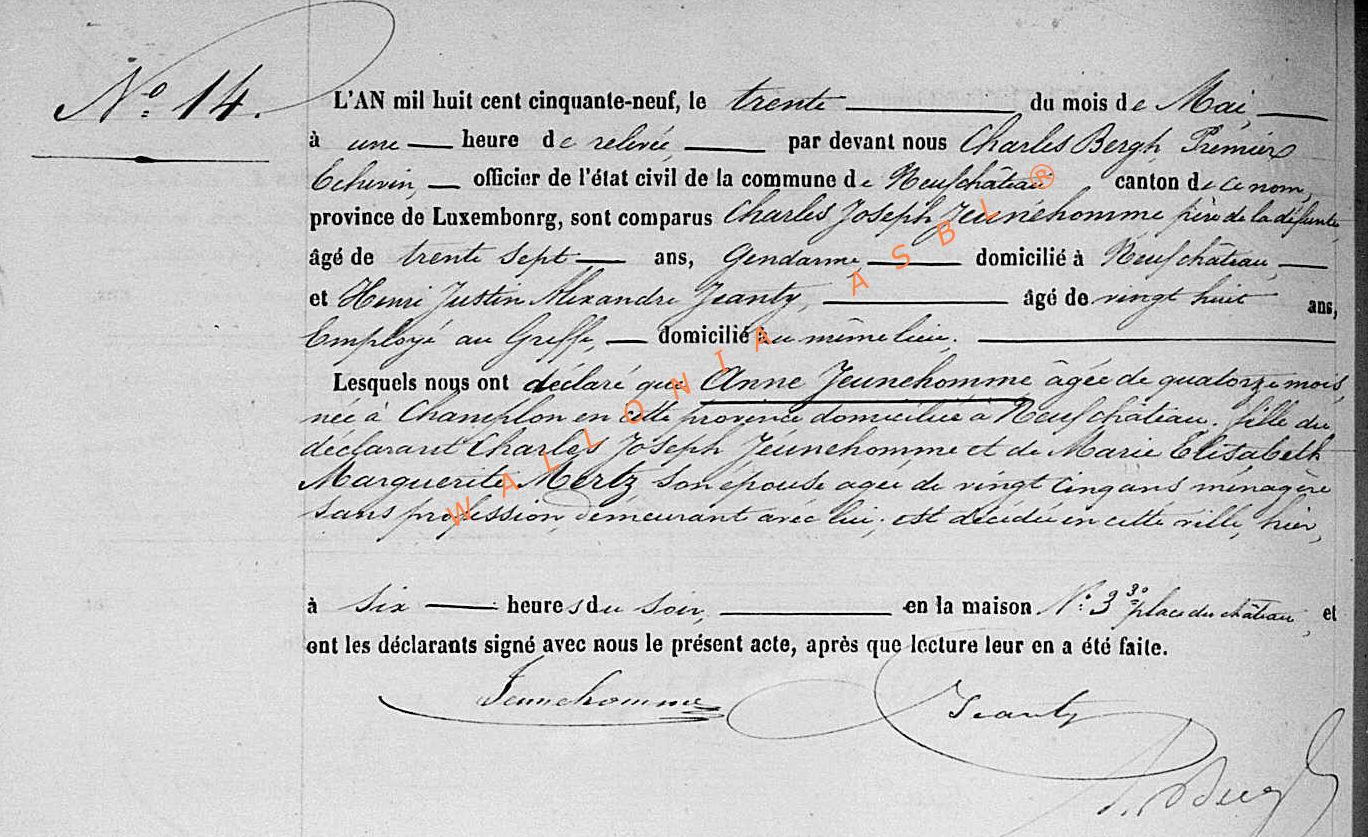 N° 14.
L'AN mil huit cent cinquante-neuf, le trente du mois de Mai,
à une heure de relevée, par devant nous Charles Bergh, Premier
Echevin, officier de l'état civil de la commune de Neufchâteau canton de ce nom,
province de Luxembonrg, sont comparus Charles Joseph Jeunehomme père de la défunte,
âgé de trente sept ans, Gendarme domicilié à Neufchâteau,
et Henri Justin Alexandre Jeanty, âgé de vingt huit ans,
Employé au Greffe, domicilié au même lieu.
Lesquels nous ont déclaré que Anne Jeunehomme âgée de quatorze mois,
née à Champlon en cette province domiciliée à Neufchâteau, fille du
déclarant Charles Joseph Jeunehomme et de Marie Elisabeth
Marguerite Mertz son épouse agée de vingt cinq ans ménagère
sans profession, demeurant avec lui; est décédée en cette ville, hier,
à six heures du soir, en la maison N° 3 3° place du château, et
ont les déclarants signé avec nous le présent acte, après que lecture leur en a été faite.
Jeunehomme Jeanty
Bergh
WALLONIA ASBL ®